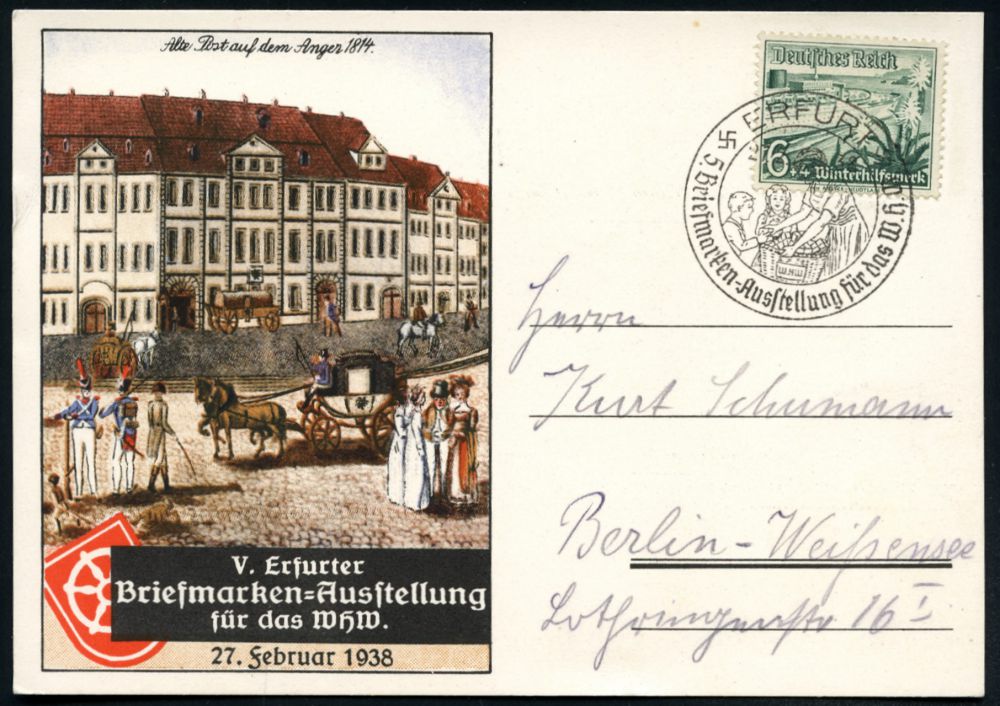 Alte Post auf dem Anger 1814.
Deutsches Reich
6+4 Winterhilfswerk
ERFURT
5. Briefmarken-Ausstellung für das WHW
W.H.W
Herrn
Kurt Schumann
Berlin-Weißensee
Lothringenstr 16 I
V. Erfurter
Briefmarken=Ausstellung
für das WHW.
27. Februar 1938